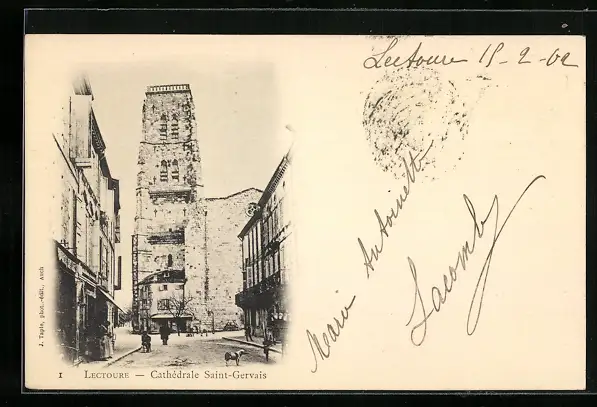 Lectoure 15-2-02
Marie Antoinette
Lacomby
J. Tapie, phot.-édit., Auch
1 LECTOURE — Cathédrale Saint-Gervais